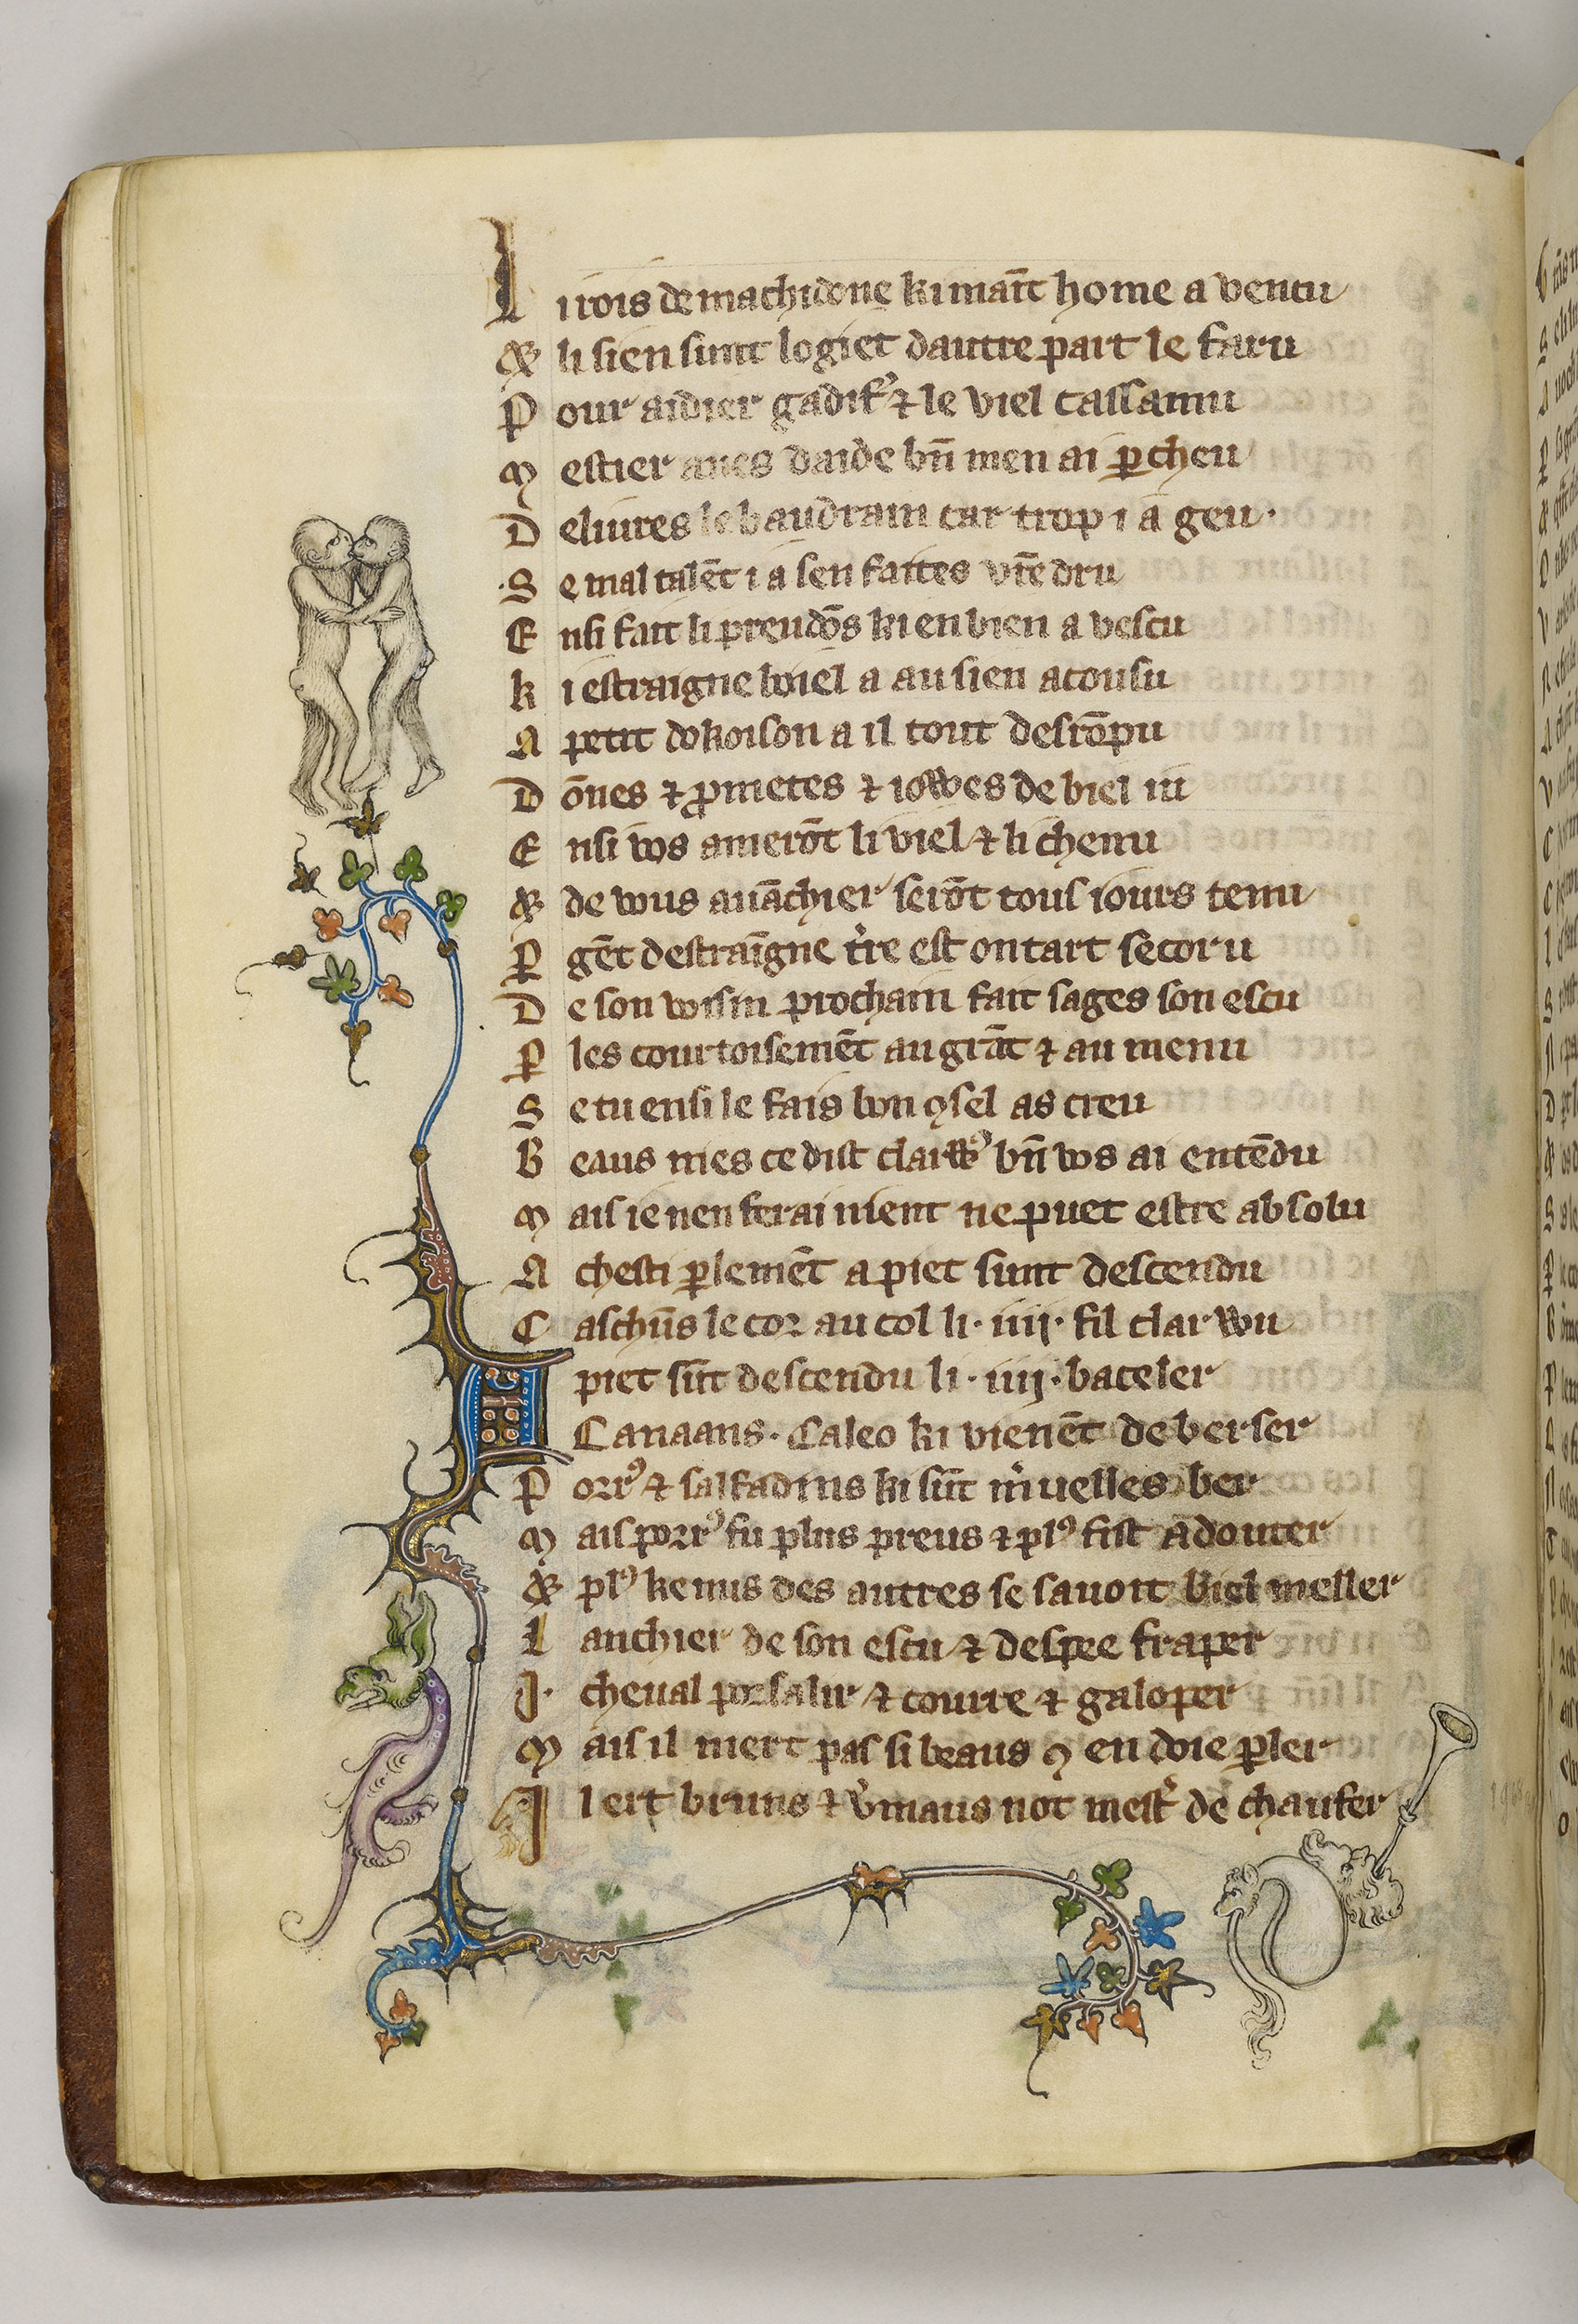 Li rois de machidone ki maīt home a vencu
& li sien sunt logiet dautre part le faru
Pour aidier gadif᾽ ⁊ le viel cassamu
Mestier aues daide bn̄ men ai ꝑcheu
Deliures le baudrain car trop i a geu·
·Se mal talēt i a sen faites vr̄e dru
Ensi fait li preudōs ki en bien a vescu
Ki estraigne loiel a au sien acousu
A petit dokoison a il tout desrōpu
Dōnes ⁊ ꝓmetes ⁊ iowes de biel iu
Ensi vos amerōt li viel ⁊ li chenu
& de vous auāchier serōt tous iours tenu
Ꝑ gēt destraīgne t̄re est on tart secoru
De son voisin prochain fait sages son escu
Ꝑles courtoisemēt au grāt ⁊ au menu
Se tu ensi le fais bon ꝯsel as creu
Beaus nies ce dist clarw᾽ bn̄ vos ai entēdu
Mais ie nen ferai nient ne puet estre absolu
A chesti ꝑlemēt a piet sunt descendu
Caschūs le cor au col li· iiij· fil clarwu
A piet sūt descendu li· iiij· bateler
Canaans· Caleo ki vienēt de berser
Porr᾽ ⁊ salfadins ki sūt m̄uelles ber
Mais porr᾽ fu plus preus ⁊ pl᾽ fist a douter
& pl᾽ ke nus des autres se sauoit biel meller
Lanchier de son escu ⁊ despee fraper
J· cheual porsalir ⁊ courre ⁊ galoper
Mais il niert pas si beaus ꝯ en doie ꝑler
Il ert bruns ⁊ v̄maus not mest̄ de chaufer